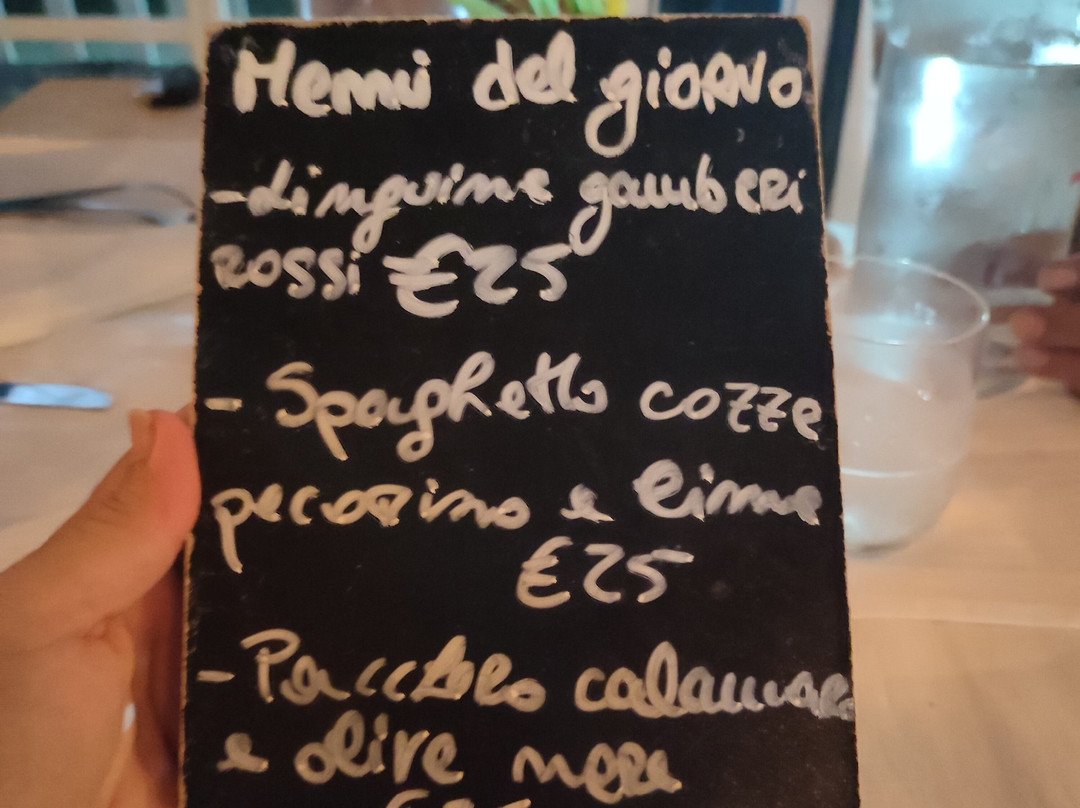 Menù del giorno
- Linguine gamberi
rossi €25
- Spaghetto cozze
pecorino e lime
€25
- Pacchero calamaro
e olive nere